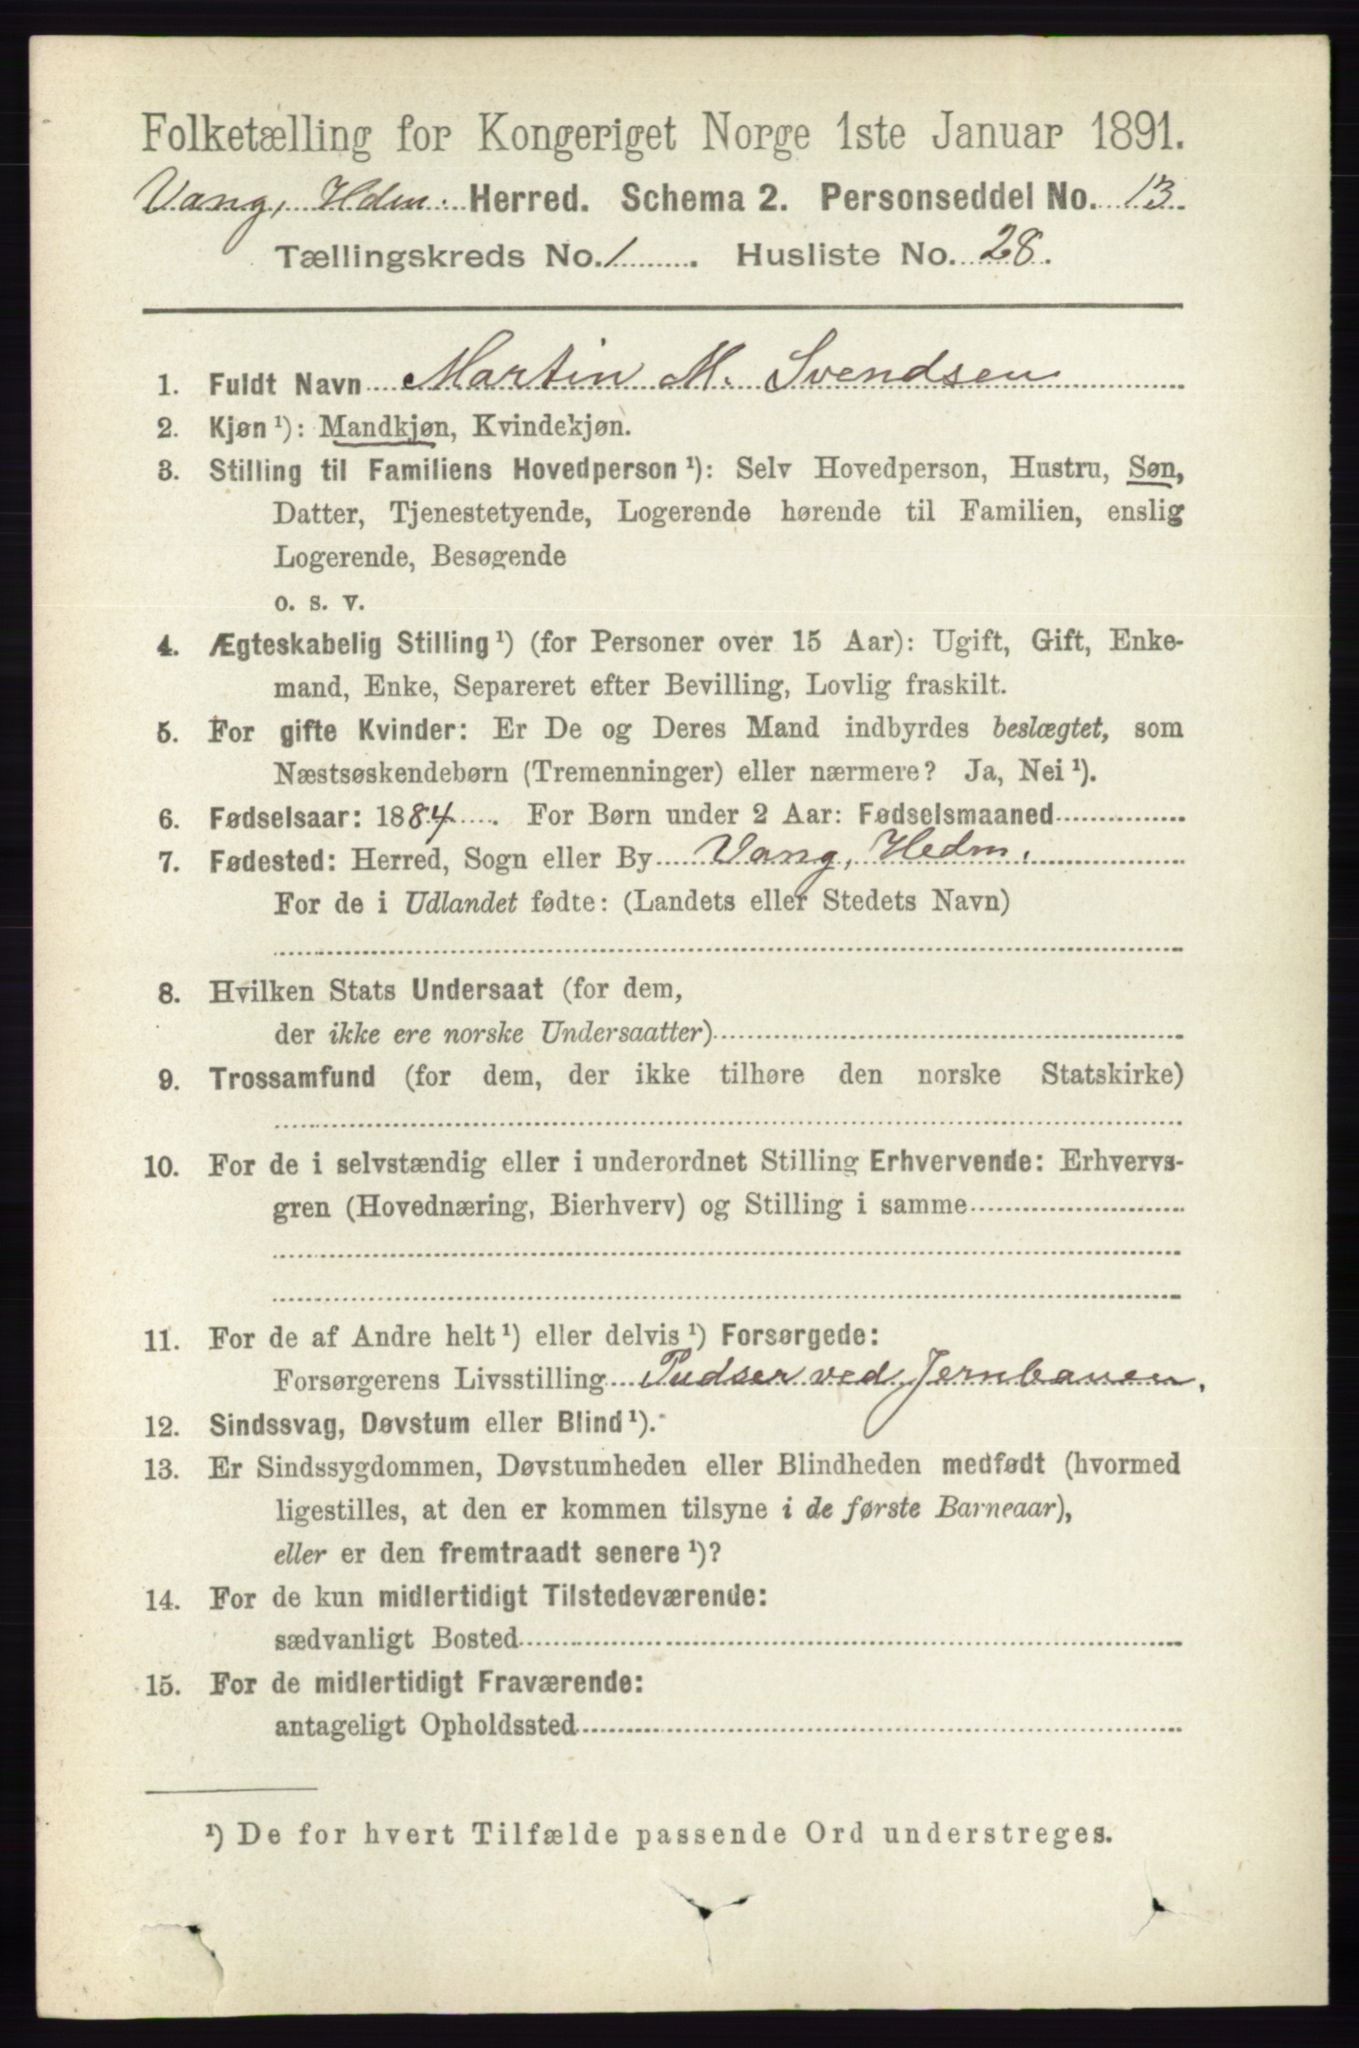 Folketælling for Kongeriget Norge 1ste Januar 1891.
Vang, Hdm. Herred. Schema 2. Personseddel No. 13.
Tællingskreds No. 1. Husliste No. 28.
1. Fuldt Navn Martin M. Svendsen
2. Kjøn ¹): Mandkjøn, Kvindekjøn.
3. Stilling til Familiens Hovedperson ¹): Selv Hovedperson, Hustru, Søn,
Datter, Tjenestetyende, Logerende hørende til Familien, enslig
Logerende, Besøgende
o. s. v.
4. Ægteskabelig Stilling ¹) (for Personer over 15 Aar): Ugift, Gift, Enke-
mand, Enke, Separeret efter Bevilling, Lovlig fraskilt.
5. For gifte Kvinder: Er De og Deres Mand indbyrdes beslægtet, som
Næstsøskendebørn (Tremenninger) eller nærmere? Ja, Nei ¹).
6. Fødselsaar: 1884. For Børn under 2 Aar: Fødselsmaaned
7. Fødested: Herred, Sogn eller By Vang, Hedm.
For de i Udlandet fødte: (Landets eller Stedets Navn)
8. Hvilken Stats Undersaat (for dem,
der ikke ere norske Undersaatter)
9. Trossamfund (for dem, der ikke tilhøre den norske Statskirke)
10. For de i selvstændig eller i underordnet Stilling Erhvervende: Erhvervs-
gren (Hovednæring, Bierhverv) og Stilling i samme
11. For de af Andre helt ¹) eller delvis ¹) Forsørgede:
Forsørgerens Livsstilling Pudser ved Jernbanen.
12. Sindssvag, Døvstum eller Blind ¹).
13. Er Sindssygdommen, Døvstumheden eller Blindheden medfødt (hvormed
ligestilles, at den er kommen tilsyne i de første Barneaar),
eller er den fremtraadt senere ¹)?
14. For de kun midlertidigt Tilstedeværende:
sædvanligt Bosted
15. For de midlertidigt Fraværende:
antageligt Opholdssted
¹) De for hvert Tilfælde passende Ord understreges.